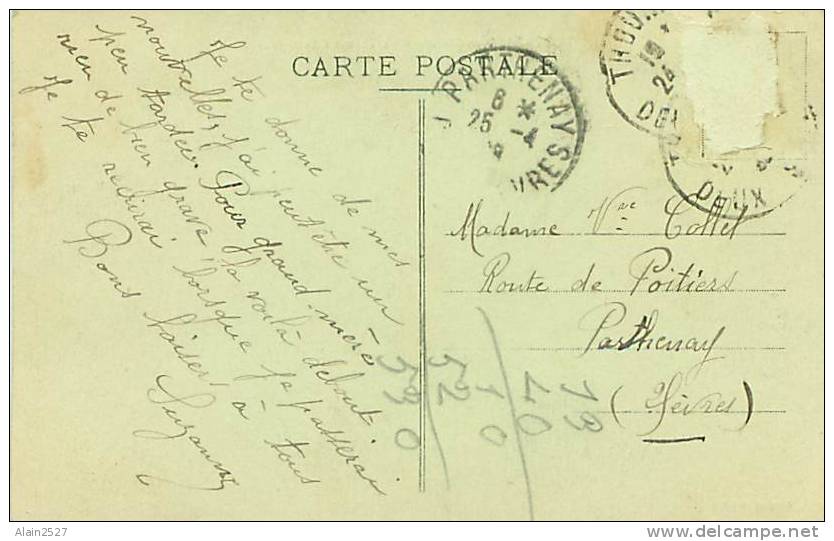 CARTE POSTALE
Je te donne de mes
nouvelles, j'ai peut être un
peu tardée. Pour grand-mère
rien de bien grave la voilà debout
Je te redirai lorsque je passerai
Bons baisers à tous
Suzanne
PARTHENAY
8 *
25 - 4
VRES
THOU
19 *
24
DEUX
Madame Vve Collet
Route de Poitiers
Parthenay
(2 Sèvres)
Alain2527
www.delcampe.net